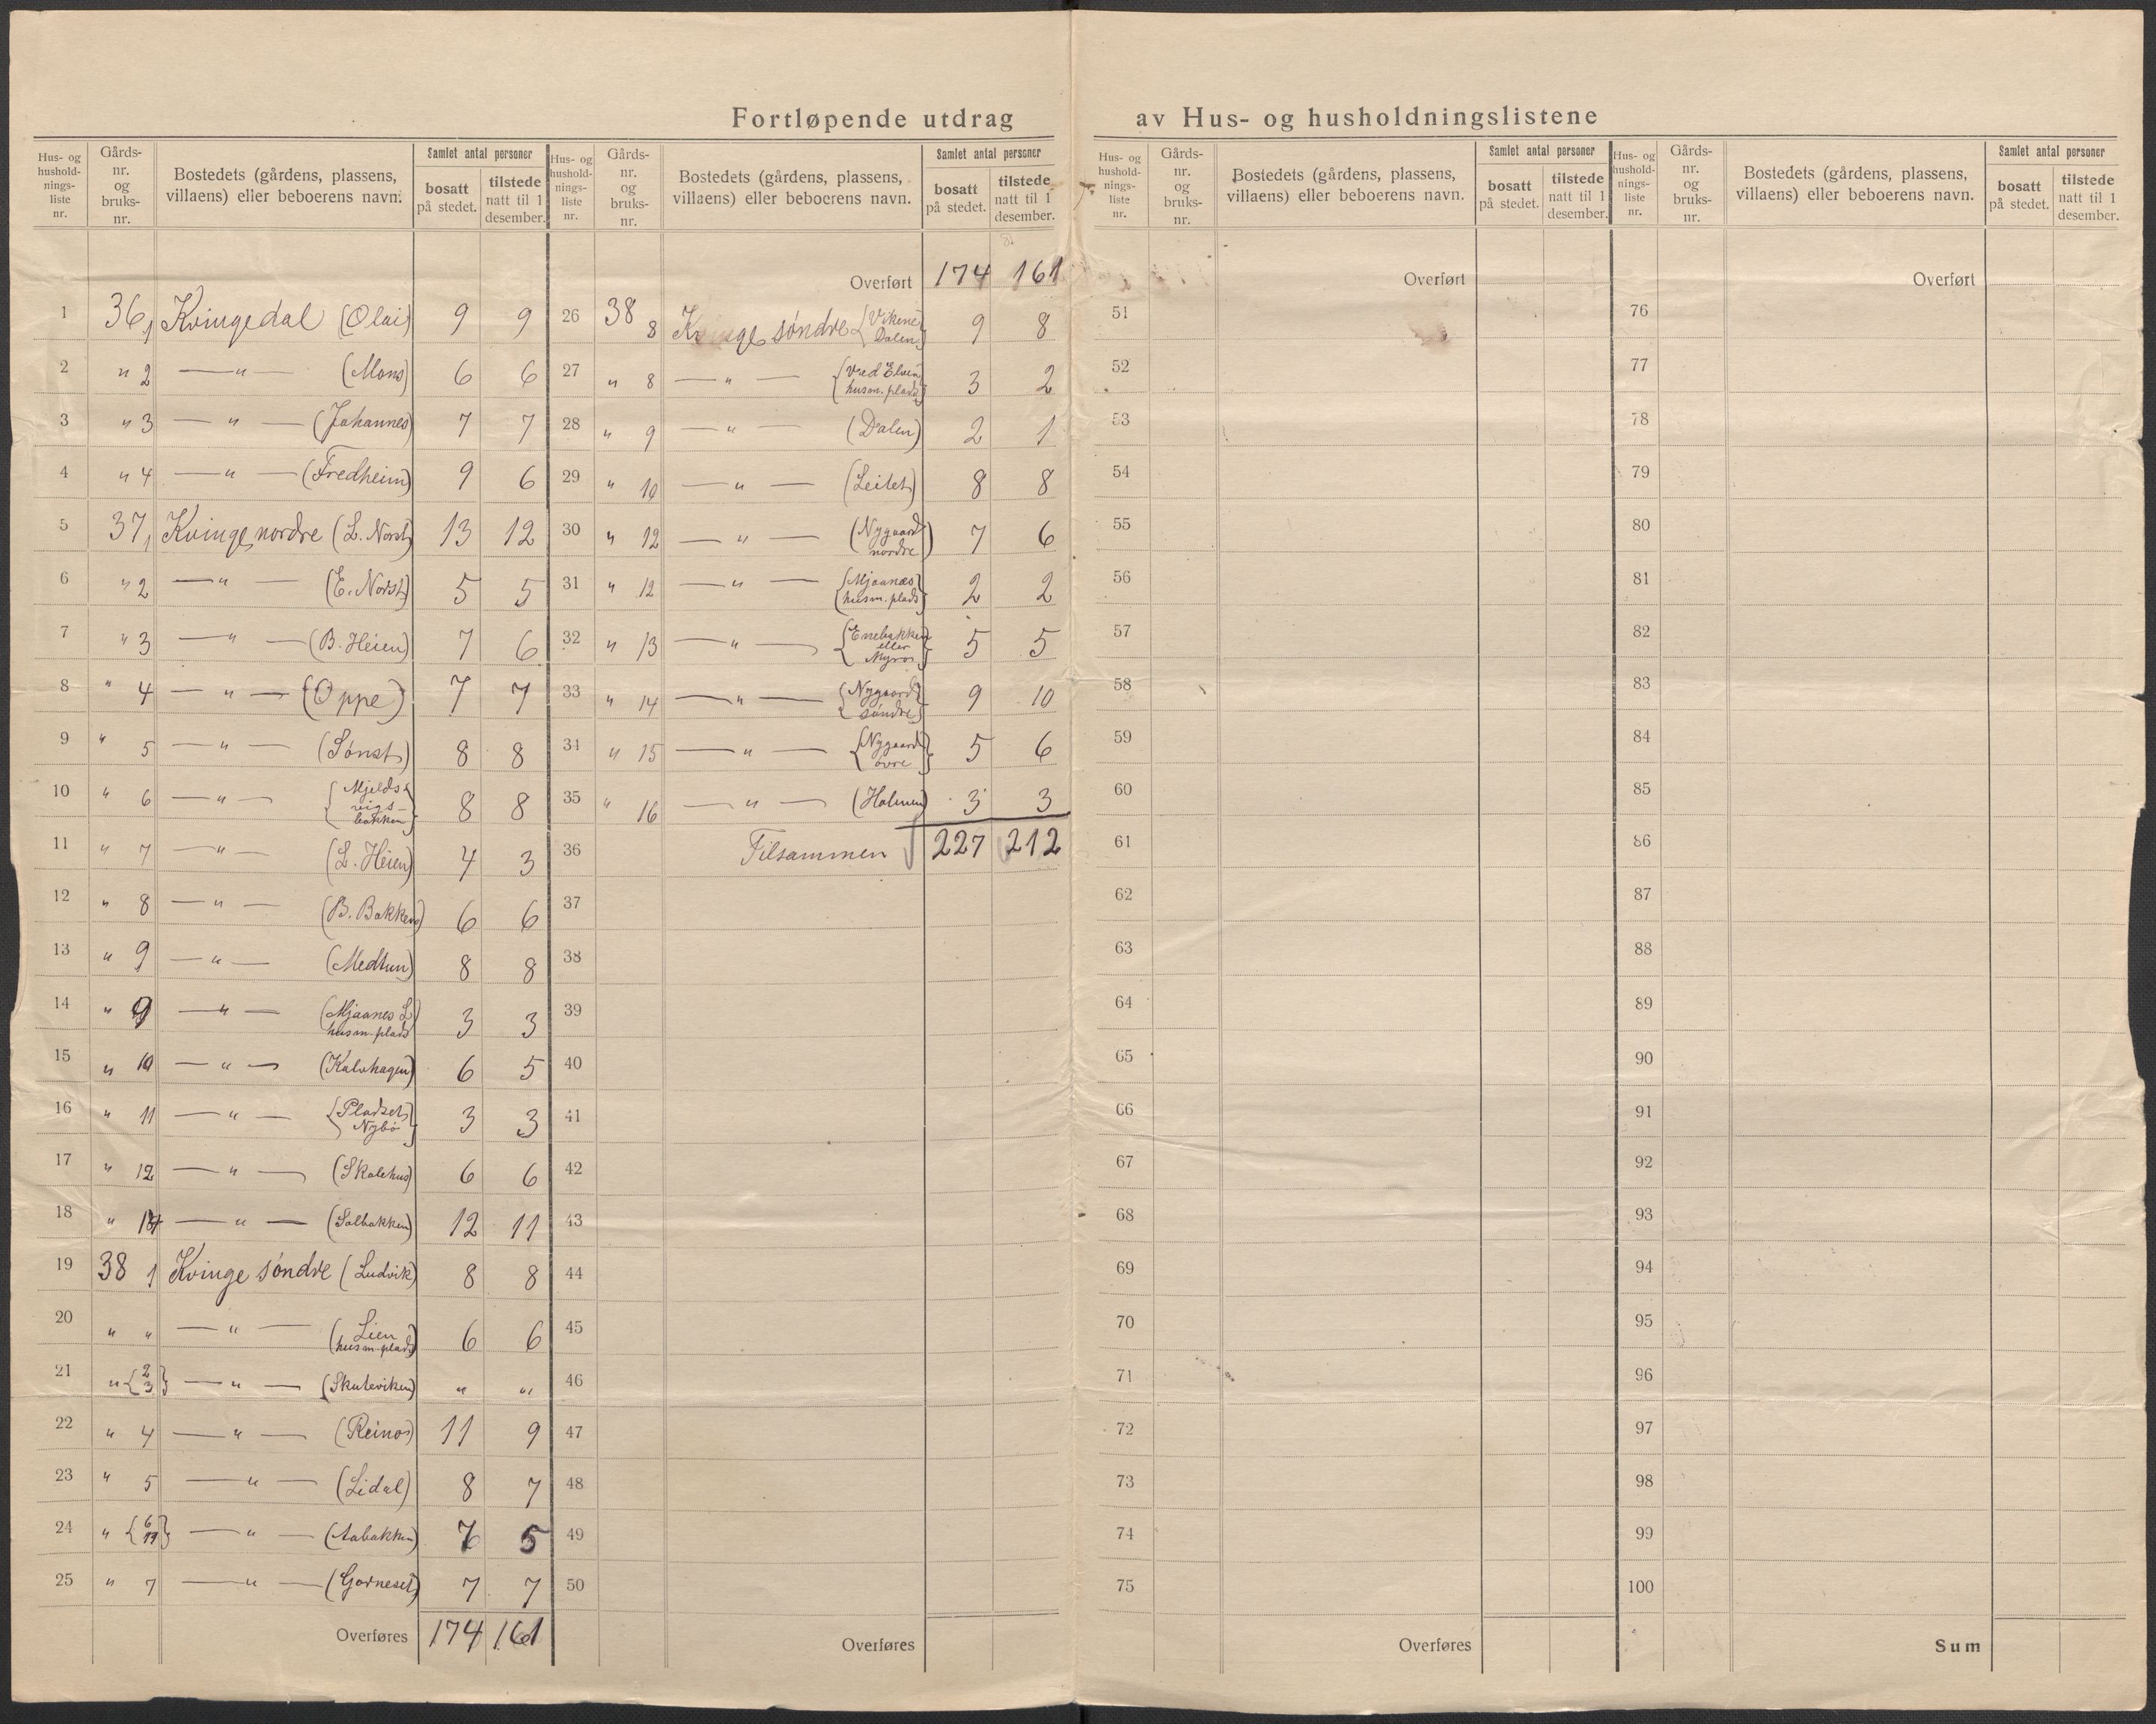 Fortløpende utdrag av Hus- og husholdningslistene
Hus- og hushold- nings- liste nr. | Gårds- nr. og bruks- nr. | Bostedets (gårdens, plassens, villaens) eller beboerens navn. | Samlet antal personer | bosatt på stedet. | tilstede natt til 1 desember.
1 36,1 Kvingedal (Olai) 9 9
2 " 2 — " — (Mons) 6 6
3 " 3 — " — (Johannes) 7 7
4 " 4 — " — (Fredheim) 9 6
5 37,1 Kvinge nordre (L. Norst) 13 12
6 " 2 — " — (E. Norst) 5 5
7 " 3 — " — (B. Heien) 7 6
8 " 4 — " — (Oppe) 7 7
9 " 5 — " — (Sønst) 8 8
10 " 6 — " — {Mjelds- vigs- bakken} 8 8
11 " 7 — " — (L. Heien) 4 3
12 " 8 — " — (B. Bakken) 6 6
13 " 9 — " — (Medtun) 8 8
14 " 9 — " — (Mjaanes L husm. plads) 3 3
15 " 10 — " — (Kalvhagen) 6 5
16 " 11 — " — {Pladset Nybø} 3 3
17 " 12 — " — (Skolehus) 6 6
18 " 14 — " — (Solbakken) 12 11
19 38 1 Kvinge søndre (Ludvik) 8 8
20 " " — " — (Lien husm. plads) 6 6
21 " {2 3} — " — (Skuteviken) " "
22 " 4 — " — (Reinos) 11 9
23 " 5 — " — (Lidal) 8 7
24 " {6 11} — " — (Aabakken) 7 5
25 " 7 — " — (Gorneset) 7 7
Overføres 174 161
Hus- og hushold- nings- liste nr. | Gårds- nr. og bruks- nr. | Bostedets (gårdens, plassens, villaens) eller beboerens navn. | Samlet antal personer | bosatt på stedet. | tilstede natt til 1 desember.
Overført 174 161
26 38 8 Kvinge søndre {Vikene Dalen} 9 8
27 " 8 — " — {Ved Elven husm. plads} 3 2
28 " 9 — " — (Dalen) 2 1
29 " 10 — " — (Leitet) 8 8
30 " 12 — " — (Nygaard nordre) 7 6
31 " 12 — " — {Mjaanæs husm. plads} 2 2
32 " 13 — " — {Enebakken eller Myros} 5 5
33 " 14 — " — {Nygaard søndre} 9 10
34 " 15 — " — {Nygaard øvre} 5 6
35 " 16 — " — (Holmen) 3 3
36 Tilsammen 227 212
37
38
39
40
41
42
43
44
45
46
47
48
49
50
Overføres
Hus- og hushold- nings- liste nr. | Gårds- nr. og bruks- nr. | Bostedets (gårdens, plassens, villaens) eller beboerens navn. | Samlet antal personer | bosatt på stedet. | tilstede natt til 1 desember.
Overført
51
52
53
54
55
56
57
58
59
60
61
62
63
64
65
66
67
68
69
70
71
72
73
74
75
Overføres
Hus- og hushold- nings- liste nr. | Gårds- nr. og bruks- nr. | Bostedets (gårdens, plassens, villaens) eller beboerens navn. | Samlet antal personer | bosatt på stedet. | tilstede natt til 1 desember.
Overført
76
77
78
79
80
81
82
83
84
85
86
87
88
89
90
91
92
93
94
95
96
97
98
99
100
Sum